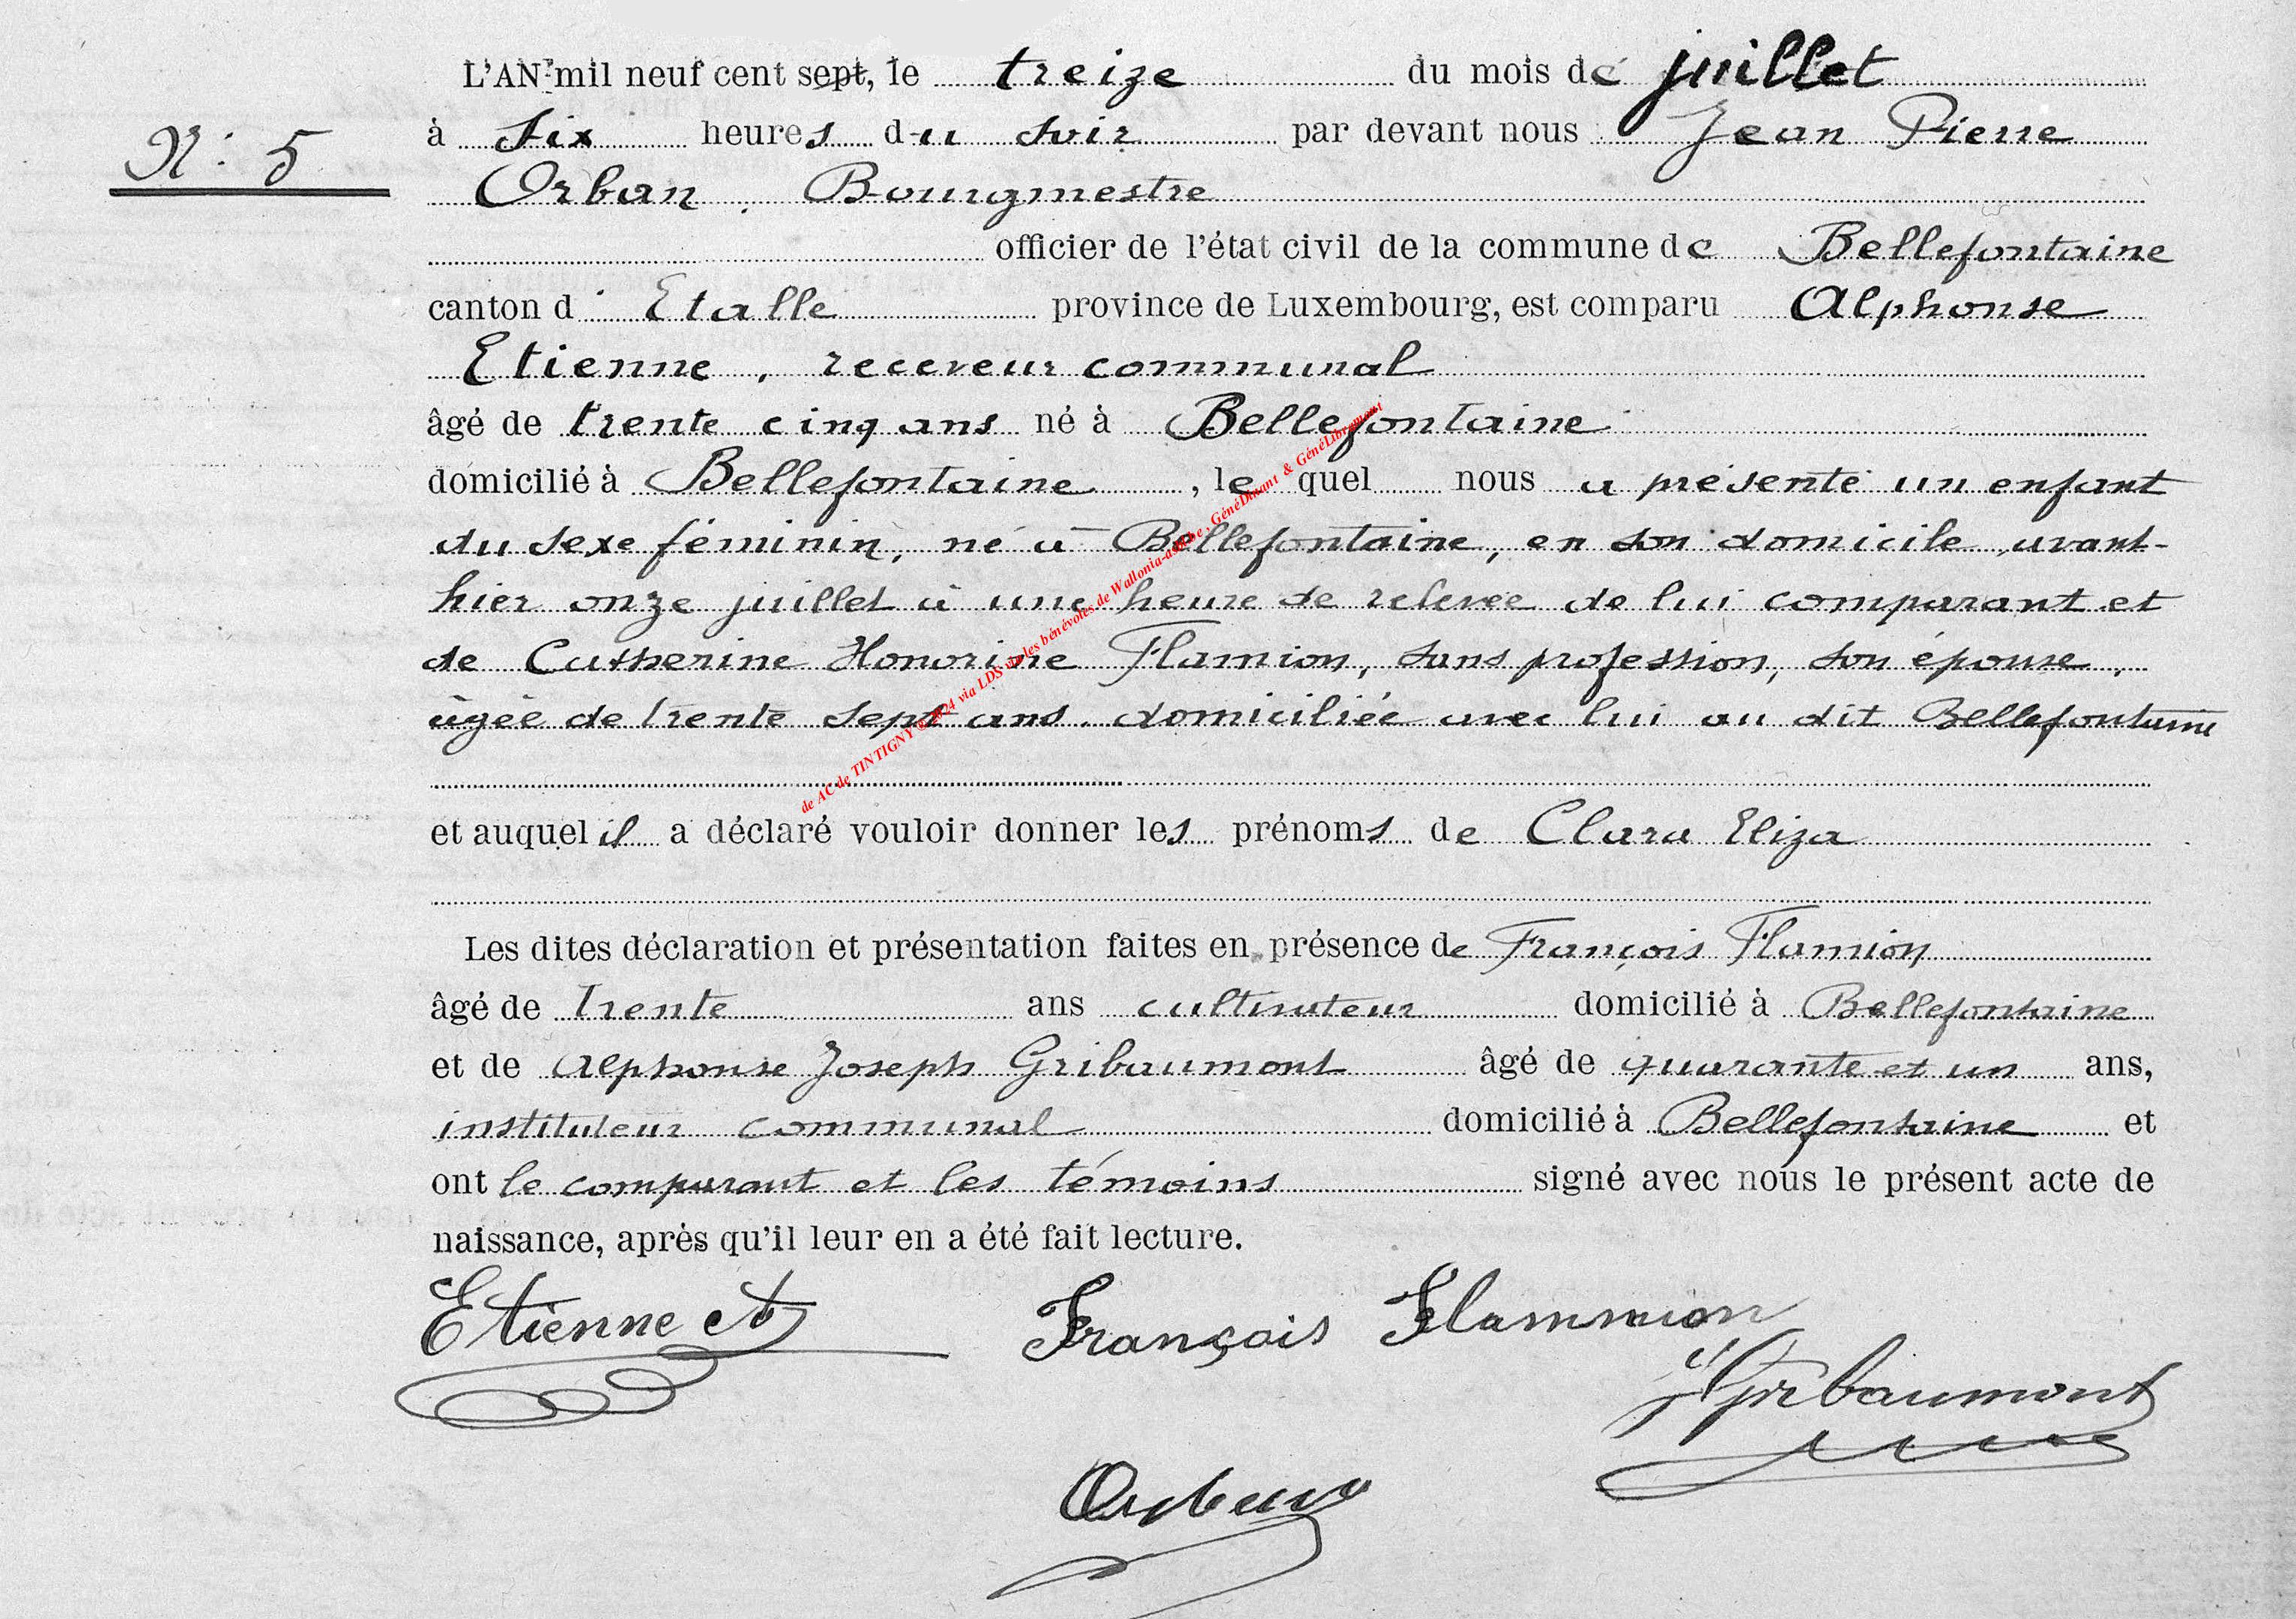 L'AN mil neuf cent sept, le treize du mois de juillet
à six heures du soir par devant nous Jean Pierre
N° 5
Orban, Bourgmestre
officier de l'état civil de la commune de Bellefontaine
canton d'Etalle province de Luxembourg, est comparu Alphonse
Etienne, receveur communal
âgé de trente cinq ans né à Bellefontaine
domicilié à Bellefontaine, lequel nous a présenté un enfant
du sexe féminin, né à Bellefontaine, en son domicile, avant-
hier onze juillet à une heure de relevée de lui comparant et
de Catherine Honorine Flamion, sans profession, son épouse,
âgée de trente sept ans, domiciliée avec lui au dit Bellefontaine
et auquel il a déclaré vouloir donner les prénoms de Clara Eliza
Les dites déclaration et présentation faites en présence de François Flamion
âgé de trente ans cultivateur domicilié à Bellefontaine
et de Alphonse Joseph Gribaumont âgé de quarante et un ans,
instituteur communal domicilié à Bellefontaine et
ont le comparant et les témoins signé avec nous le présent acte de
naissance, après qu'il leur en a été fait lecture.
Etienne A François Flammion
Gribaumont
Orban
de AC de TINTIGNY © 2024 via LDS via les bénévoles de Wallonia-asbl.be, GénéDinant & GénéLibramont